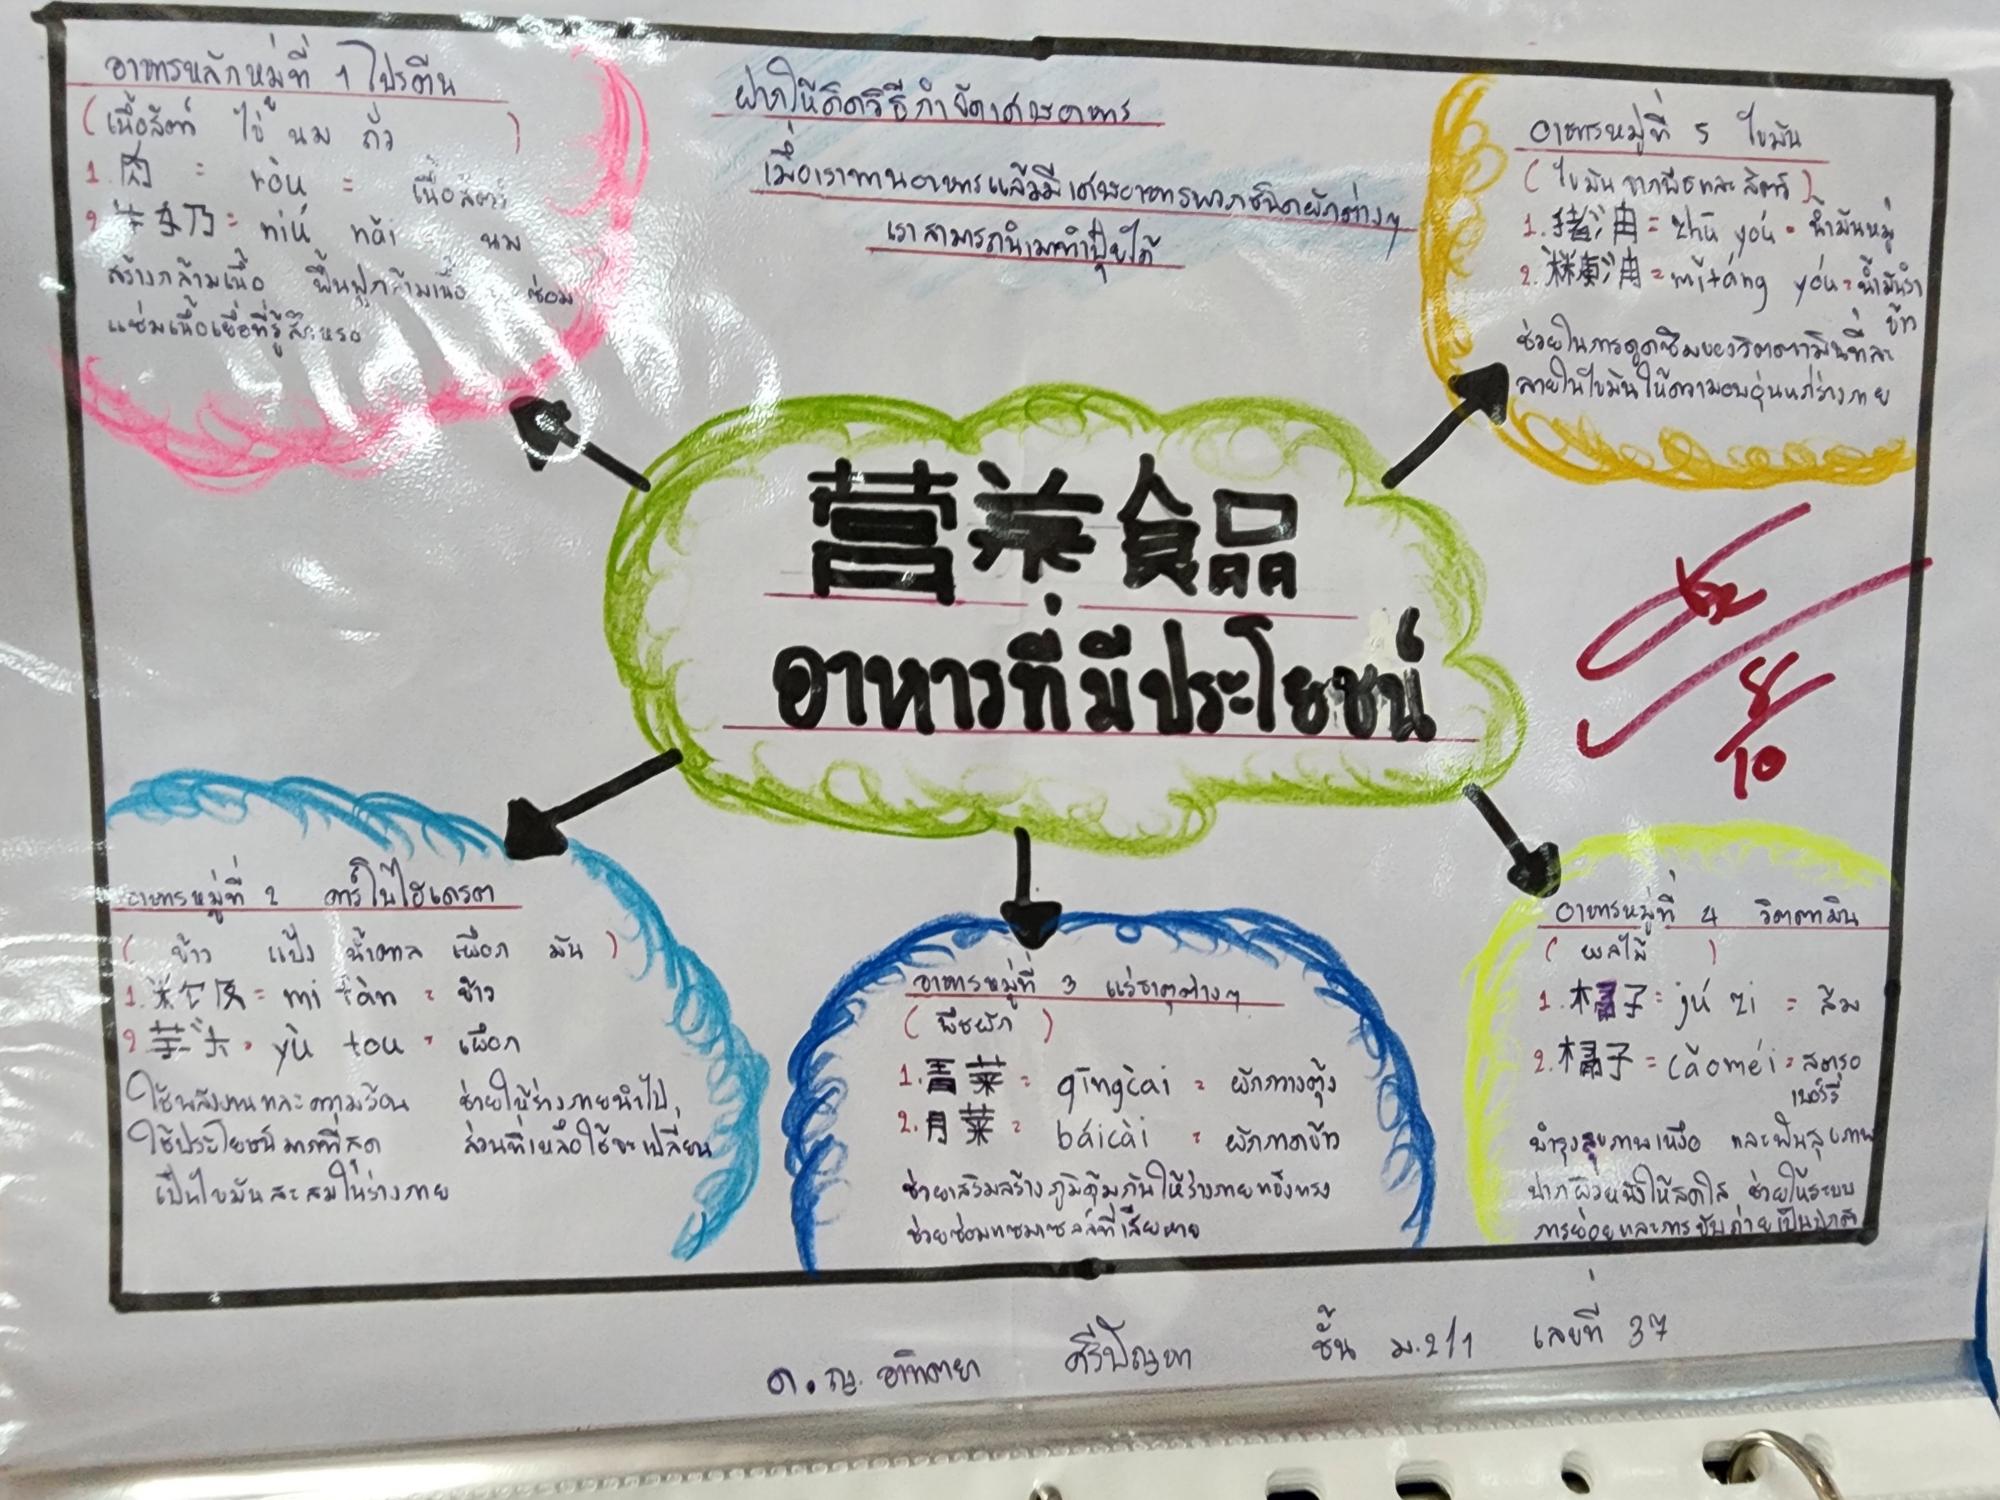 อาหารหลักหมู่ที่ 1 โปรตีน
(เนื้อสัตว์ ไข่ นม ถั่ว)
1. 肉 = ròu = เนื้อสัตว์
2. 牛奶 = niú nǎi = นม
สร้างกล้ามเนื้อ ฟื้นฟูกล้ามเนื้อ ซ่อม
แซ่มเนื้อเยื่อที่รู้สึกหรอ
ฝากให้คิดวิธีกำจัดเศษอาหาร
เมื่อเราทานอาหารแล้วมีเศษอาหารพวกชนิดผักต่างๆ
เราสามารถนำมาทำปุ๋ยได้
อาหารหมู่ที่ 5 ไขมัน
(ไขมันจากพืชและสัตว์)
1. 猪油 = zhū yóu = น้ำมันหมู
2. 油 = mǐtáng yóu = น้ำมันรำ
ข้าว
ช่วยในการดูดซึมของวิตตามินที่ละ
ลายในไขมันให้ความอบอุ่นแก่ร่างกาย
营菜食品
อาหารที่มีประโยชน์
8/10
อาหารหมู่ที่ 2 คาร์โบไฮเดรต
(ข้าว แป้ง น้ำตาล เผือก มัน)
1. = mi fàn = ข้าว
2. = yù tou = เผือก
ใช้พลังงานและความร้อน ช่วยให้ร่างกายนำไป
ใช้ประโยชน์มากที่สุด ส่วนที่เหลือใช้จะเปลี่ยน
เป็นไขมันสะสมในร่างกาย
อาหารหมู่ที่ 3 แร่ธาตุต่างๆ
(พืชผัก)
1. 青菜 = qīngcài = ผักกวางตุ้ง
2. 月菜 = báicài = ผักกาดขาว
ช่วยเสริมสร้างภูมิคุ้มกันให้ร่างกายแข็งแรง
ช่วยซ่อมแซมเซลล์ที่เสียหาย
อาหารหมู่ที่ 4 วิตตามิน
(ผลไม้)
1. 橘子 = jú zi = ส้ม
2. 橘子 = cǎoméi = สตรอ
เบอร์รี่
บำรุงสุขภาพเหงือ และฟันสุขภาพ
ปากผิวหนังให้สดใส ช่วยให้ระบบ
การย่อยและการขับถ่ายเป็นปกติ
ด.ญ. อาทิตยา ศรีปัญหา ชั้น ม.2/1 เลขที่ 37